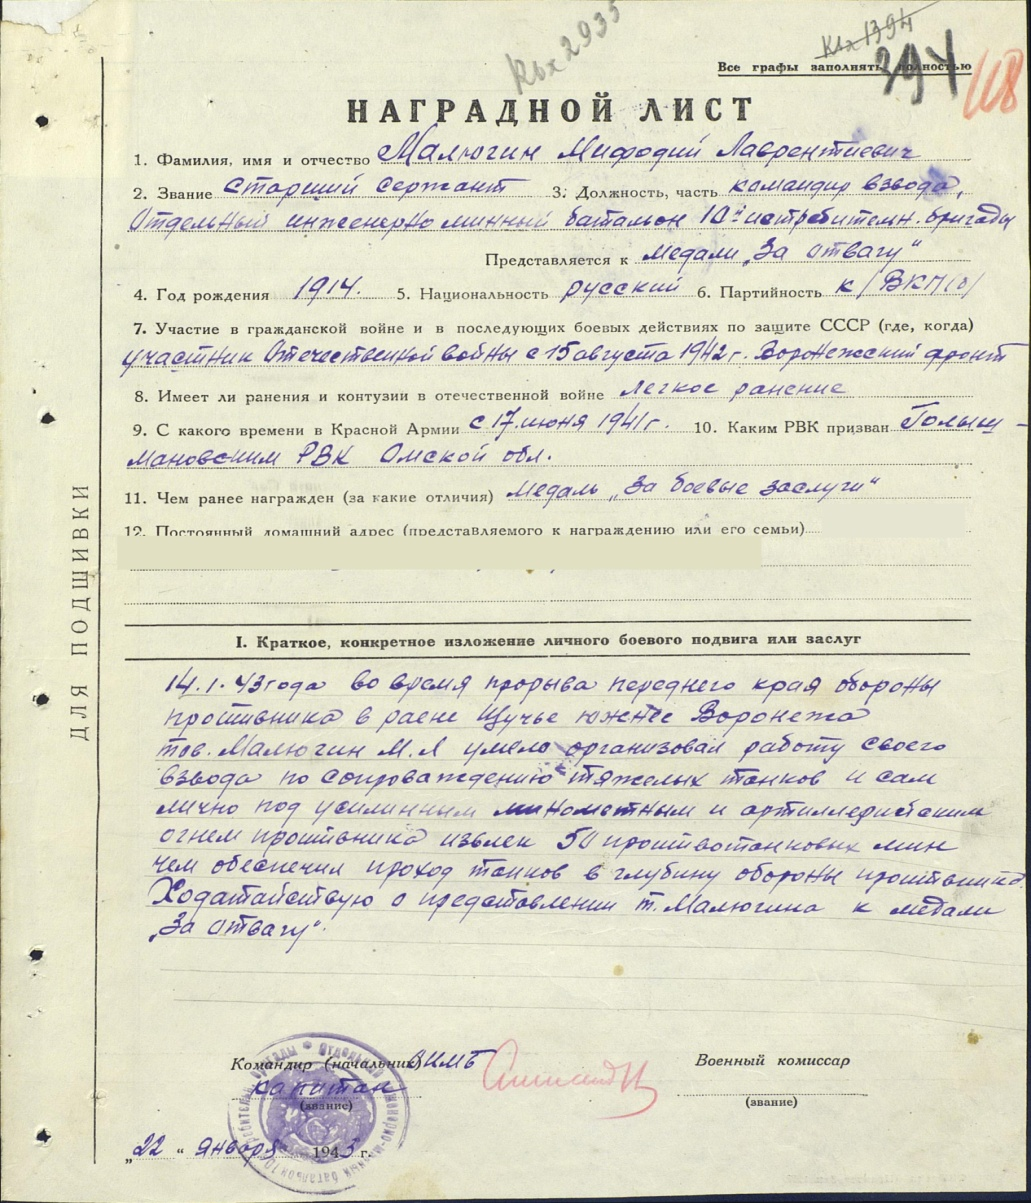 Квх 2935
Квх 1394
Все графы заполнять полностью
394
118
НАГРАДНОЙ ЛИСТ
1. Фамилия, имя и отчество Малюгин Мифодий Лаврентиевич
2. Звание старший сержант 3. Должность, часть командир взвода,
Отдельный инженерно минный батальон 10й истребительн. бригады
Представляется к медали „За отвагу"
4. Год рождения 1914. 5. Национальность русский 6. Партийность к/ВКП(б)
7. Участие в гражданской войне и в последующих боевых действиях по защите СССР (где, когда)
участник Отечественной войны с 15 августа 1942 г. Воронежский фронт
8. Имеет ли ранения и контузии в отечественной войне легкое ранение
9. С какого времени в Красной Армии с 17 июня 1941 г. 10. Каким РВК призван Голыш-
мановским РВК Омской обл.
11. Чем ранее награжден (за какие отличия) Медаль „За боевые заслуги"
12. Постоянный домашний адрес (представляемого к награждению или его семьи)
ДЛЯ ПОДШИВКИ
I. Краткое, конкретное изложение личного боевого подвига или заслуг
14.1.43 года во время прорыва переднего края обороны
противника в раене Щучье южнее Воронежа
тов. Малюгин М.Л умело организовал работу своего
взвода по сопровождению тяжелых танков и сам
лично под усилинным минометным и артиллерийским
огнем противника извлек 50 противотанковых мин
чем обеспечил проход танков в глубину обороны противника.
Ходатайствую о предоставлении т. Малюгина к медали
„За отвагу".
Командир (начальник) ОИМБ
капитан
(звание)
Военный комиссар
(звание)
„22" января 1943 г.